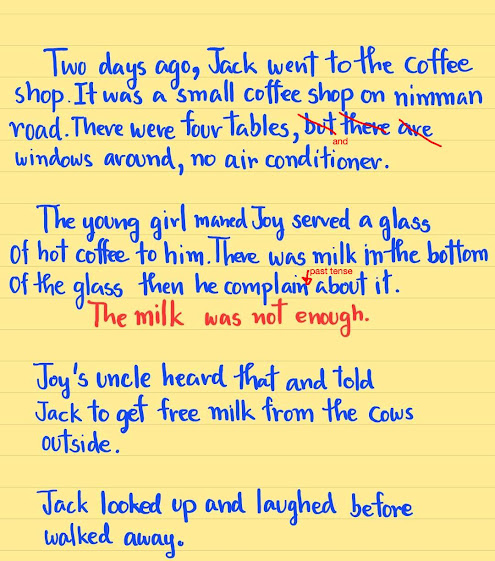 Two days ago, Jack went to the coffee
shop. It was a small coffee shop on nimman
road. There were four tables, but there are
and
windows around, no air conditioner.
The young girl maned Joy served a glass
of hot coffee to him. There was milk in the bottom
past tense
of the glass then he complain about it.
The milk was not enough.
Joy's uncle heard that and told
Jack to get free milk from the cows
outside.
Jack looked up and laughed before
walked away.